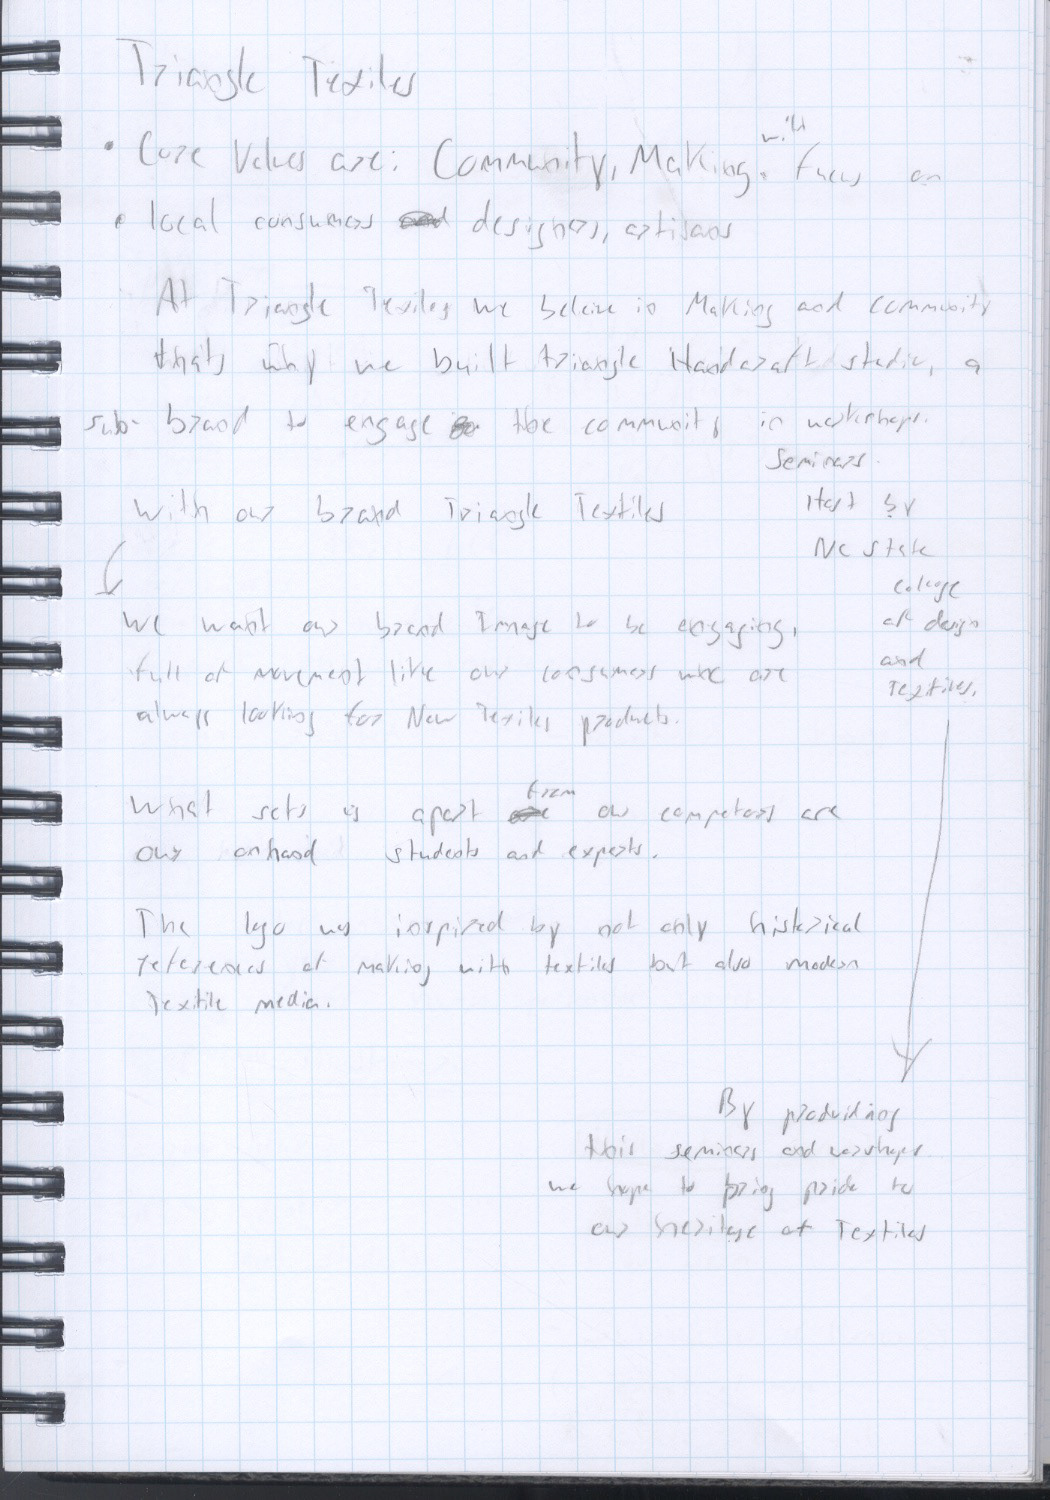 Triangle Textiles
• Core Values are: Community, Making. with focus on
• local consumers designers, artisans
At Triangle Textiles we beleive in Making and community
thats why we built triangle Handcraft studio, a
sub- brand to engage the community in workshops.
Seminars.
Host by
NC state
college
of design
and
Textiles.
With our brand Triangle Textiles
We want our brand Image to be engaging,
full of movement like our consumers who are
always looking for New Textiles products.
What sets is apart from our competors are
our onhand students and experts.
The logo was inspired by not only historical
references of making with textiles but also modern
Textile media.
By producing
this seminars and worshops
we hope to bring pride to
our heritage of Textiles